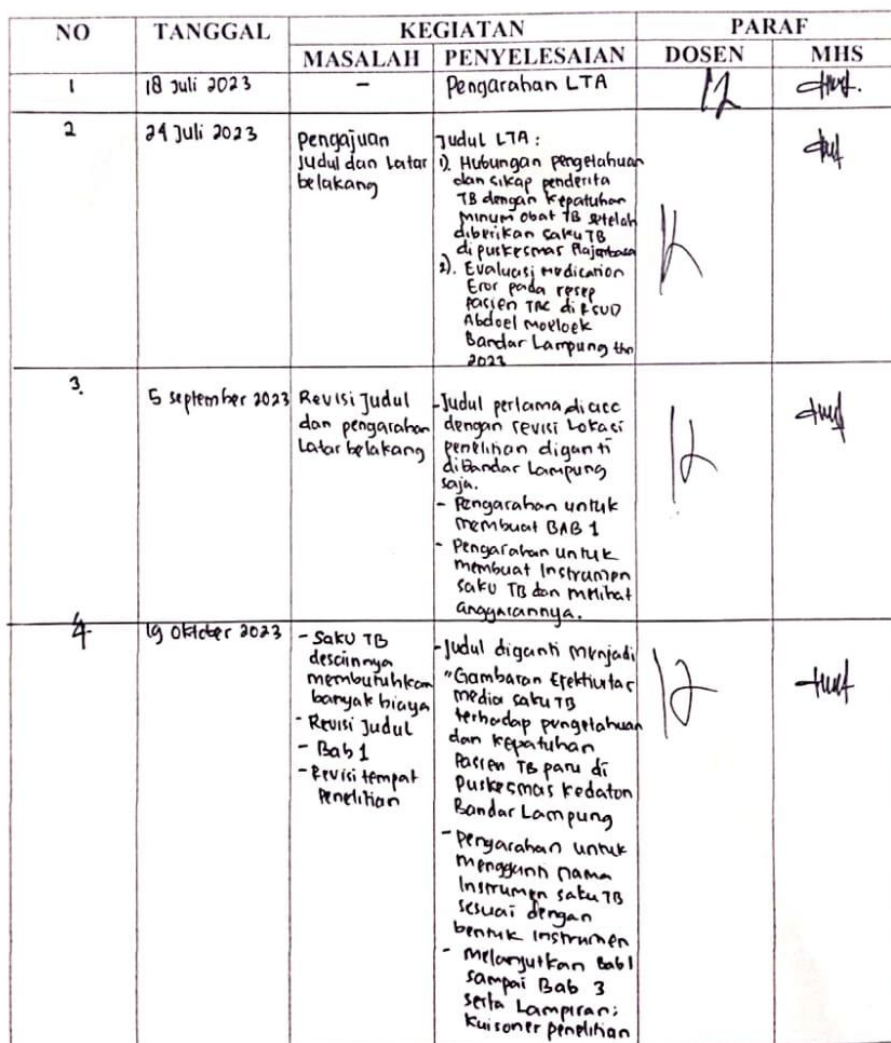 NO TANGGAL KEGIATAN PARAF
MASALAH PENYELESAIAN DOSEN MHS
1 18 Juli 2023 - Pengarahan LTA
2 24 Juli 2023
Pengajuan
Judul dan Latar
belakang
Judul LTA :
1). Hubungan pengetahuan
dan sikap penderita
TB dengan kepatuhan
minum obat TB setelah
diberikan saku TB
di puskesmas Rajabasa
2). Evaluasi Medication
Eror pada resep
pasien TBC di RSUD
Abdoel Moeloek
Bandar Lampung thn
2023
3. 5 September 2023
Revisi Judul
dan pengarahan
Latar belakang
- Judul pertama di acc
dengan revisi Lokasi
penelitian diganti
di Bandar Lampung
saja.
- Pengarahan untuk
membuat BAB 1
- Pengarahan untuk
membuat Instrumen
saku TB dan melihat
anggarannya.
4. 19 Oktober 2023
- Saku TB
desainnya
membutuhkan
banyak biaya
- Revisi Judul
- Bab 1
- Revisi tempat
Penelitian
- Judul diganti menjadi
"Gambaran Efektivitas
media saku TB
terhadap pengetahuan
dan kepatuhan
Pasien TB paru di
Puskesmas Kedaton
Bandar Lampung
- Pengarahan untuk
mengganti nama
Instrumen saku TB
sesuai dengan
bentuk instrumen
- Melanjutkan Bab 1
sampai Bab 3
serta Lampiran;
kuisoner penelitian